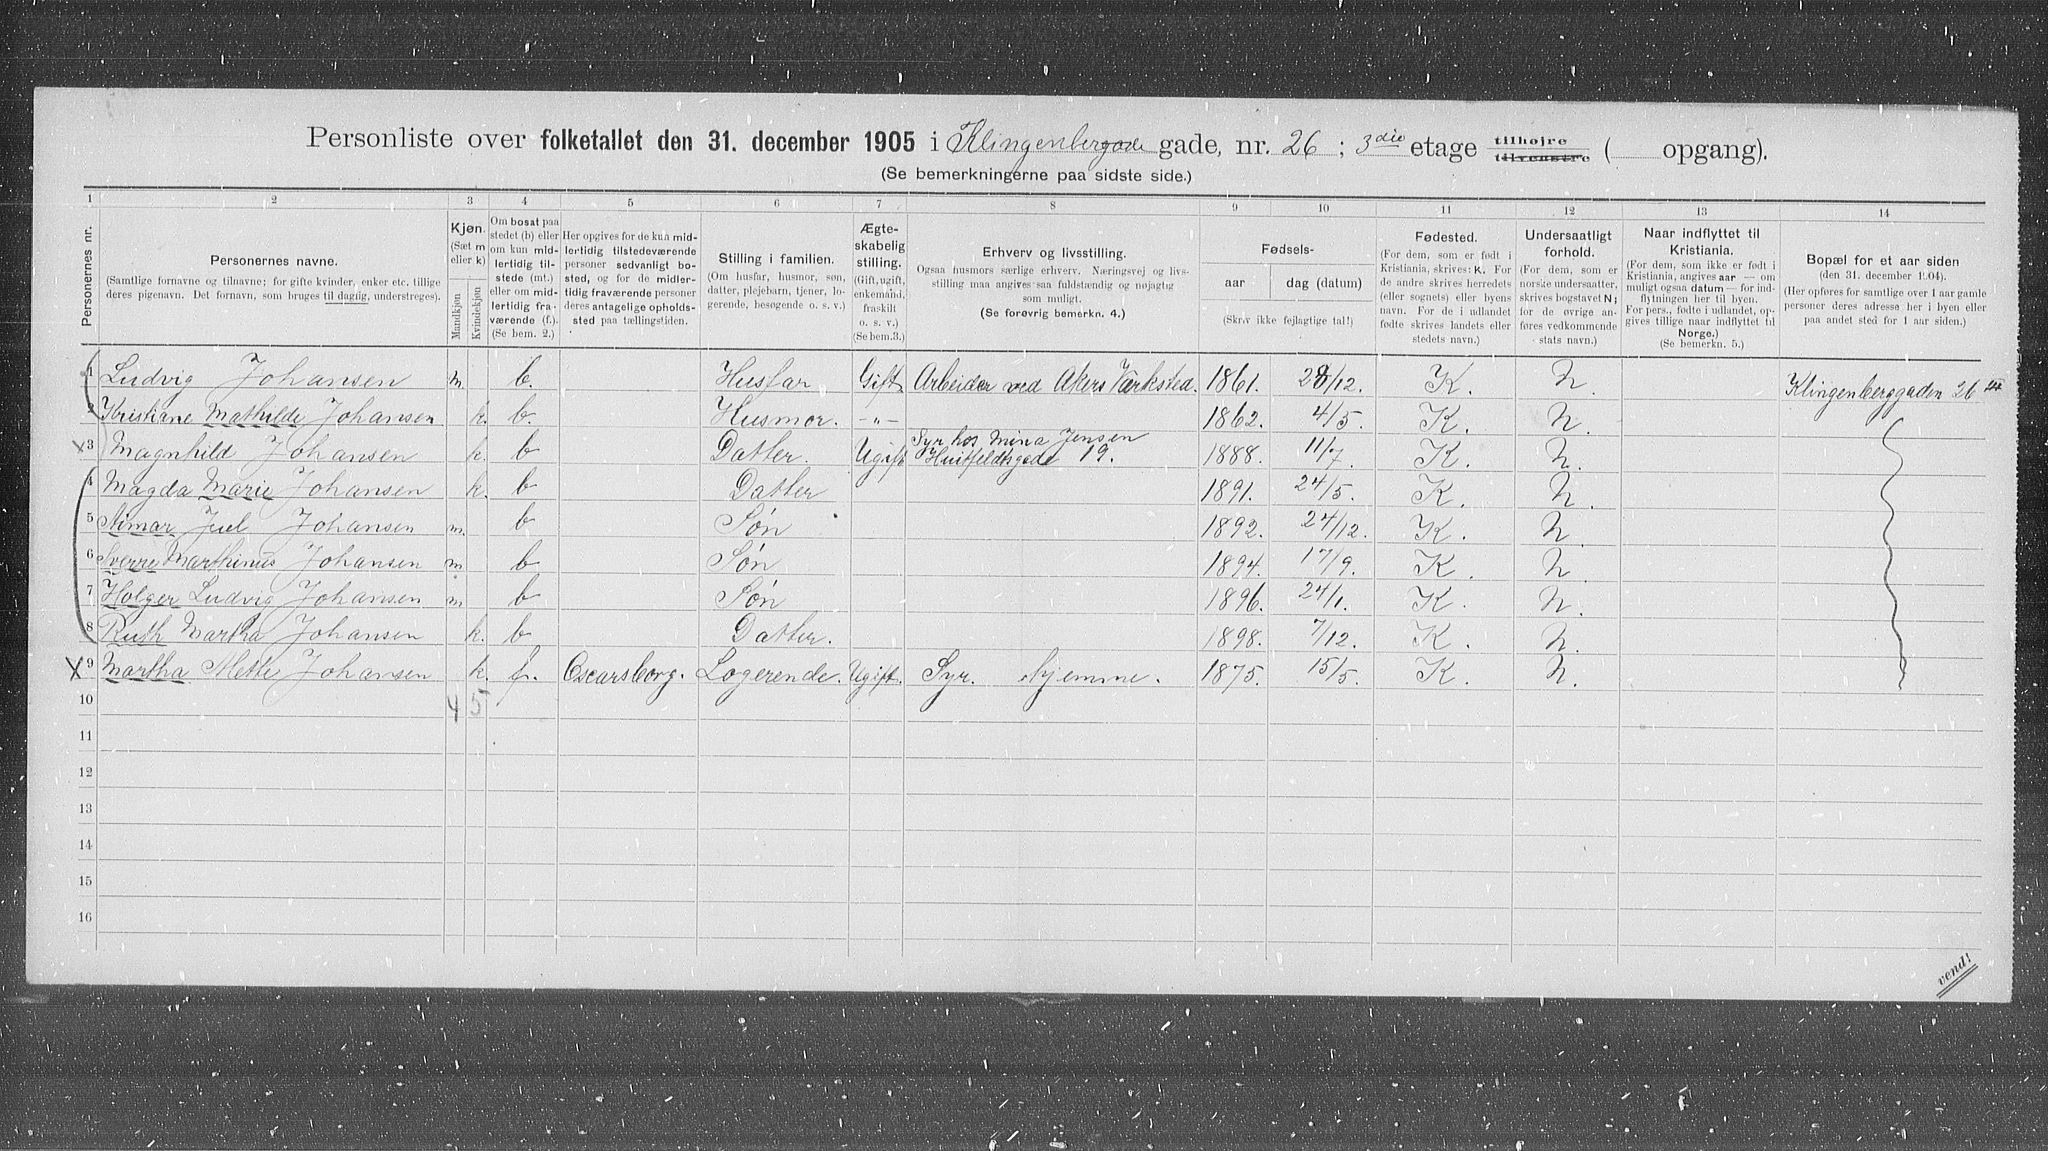 Personliste over folketallet den 31. december 1905 i Klingenbergade gade, nr. 26 ; 3die etage tilhøjre tilvenstre ( opgang).
(Se bemerkningerne paa sidste side.)
1 2 3 4 5 6 7 8 9 10 11 12 13 14
Personernes nr.
Personernes navne.
(Samtlige fornavne og tilnavne; for gifte kvinder, enker etc. tillige
deres pigenavn. Det fornavn, som bruges til daglig, understreges).
Kjøn.
(Sæt m
eller k)
Mandkjøn
Kvindekjøn
Om bosat paa
stedet (b) eller
om kun mid-
lertidig til-
stede (mt.)
eller om mid-
lertidig fra-
værende (f.).
(Se bem. 2.)
Her opgives for de kun mid-
lertidig tilstedeværende
personer sedvanligt bo-
sted, og for de midler-
tidig fraværende personer
deres antagelige opholds-
sted paa tællingstiden.
Stilling i familien.
(Om husfar, husmor, søn,
datter, plejebarn, tjener, lo-
gerende, besøgende o. s. v.)
Ægte-
skabelig
stilling.
(Gift, ugift,
enkemand,
fraskilt
o. s. v.)
(Se bem.3.)
Erhverv og livsstilling.
Ogsaa husmors særlige erhverv. Næringsvej og livs-
stilling maa angives saa fuldstændig og nøjagtig
som muligt.
(Se forøvrig bemerkn. 4.)
Fødsels-
aar
dag (datum)
(Skriv ikke fejlagtige tal!)
Fødested.
(For dem, som er født i
Kristiania, skrives: K. For
de andre skrives herredets
(eller sognets) eller byens
navn. For de i udlandet
fødte skrives landets eller
stedets navn.)
Undersaatligt
forhold.
(For dem, som er
norske undersaatter,
skrives bogstavet N;
for de øvrige an-
føres vedkommende
stats navn.)
Naar indflyttet til
Kristiania.
(For dem, som ikke er født i
Kristiania, angives aar — om
muligt ogsaa datum — for ind-
flytningen her til byen.
For pers., fødte i udlandet, op-
gives tillige naar indflyttet til
Norge.)
(Se bemerkn. 5.)
Bopæl for et aar siden
(den 31. december 1904).
(Her opføres for samtlige over 1 aar gamle
personer deres adresse her i byen eller
paa andet sted for 1 aar siden.)
1 Ludvig Johansen m. b. Husfar Gift Arbeider ved Akers Værksted. 1861. 28/12. K. N. Klingenberggaden 26
2 Kristiane Mathilde Johansen k. b. Husmor. -„- 1862. 4/5. K. N.
X 3 Magnhild Johansen k. b Datter. Ugift Syr hos Mina Jensen
Huitfeldtsgade 19. 1888. 11/7. K. N.
4 Magda Marie Johansen k. b Datter 1891. 24/5. K. N.
5 Juel Johansen m. b Søn 1892. 24/12. K. N.
6 Sverre Marthinus Johansen m b Søn 1894. 17/9. K. N.
7 Holger Ludvig Johansen m b Søn 1896. 24/1. K. N.
8 Ruth Martha Johansen k. b Datter. 1898. 7/12. K. N.
X 9 Martha Mette Johansen k. f. Oscarsborg. Logerende. Ugift. Syr. hjemme. 1875. 15/5. K. N.
10 4 5
11
12
13
14
15
16
vend!